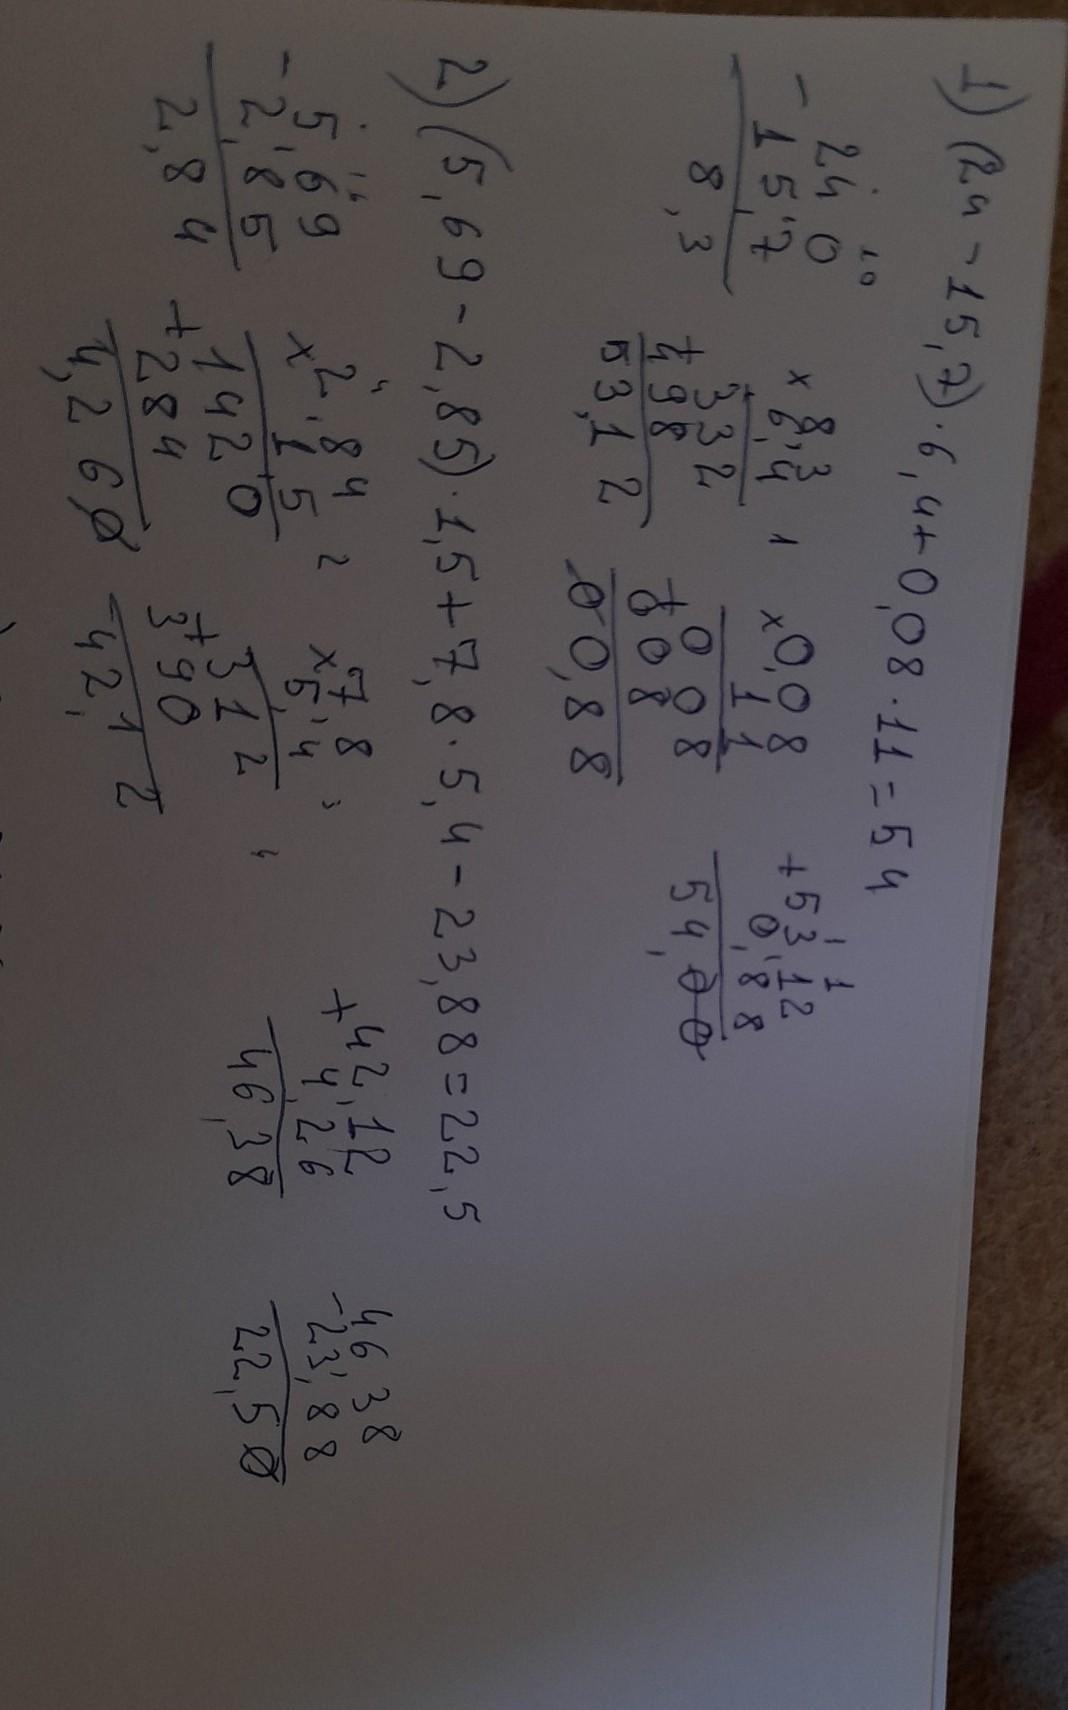 1) (24 - 15,7) · 6,4 + 0,08 · 11 = 54
10
24 0
- 15,7
8,3
8,3
× 6,4
332
+ 498
53,12
1
0,08
× 11
0 08
+ 0 08
00,88
1 1
53,12
+ 0,88
54,00
2) (5,69 - 2,85) · 1,5 + 7,8 · 5,4 - 23,88 = 22,5
5,69
- 2,85
2,84
4
2,84
× 1,5
1420
+ 284
4,260
2
7,8
× 5,4
312
+ 390
42,12
3
4
42,12
+ 4,26
46,38
46 38
- 23,88
22,50